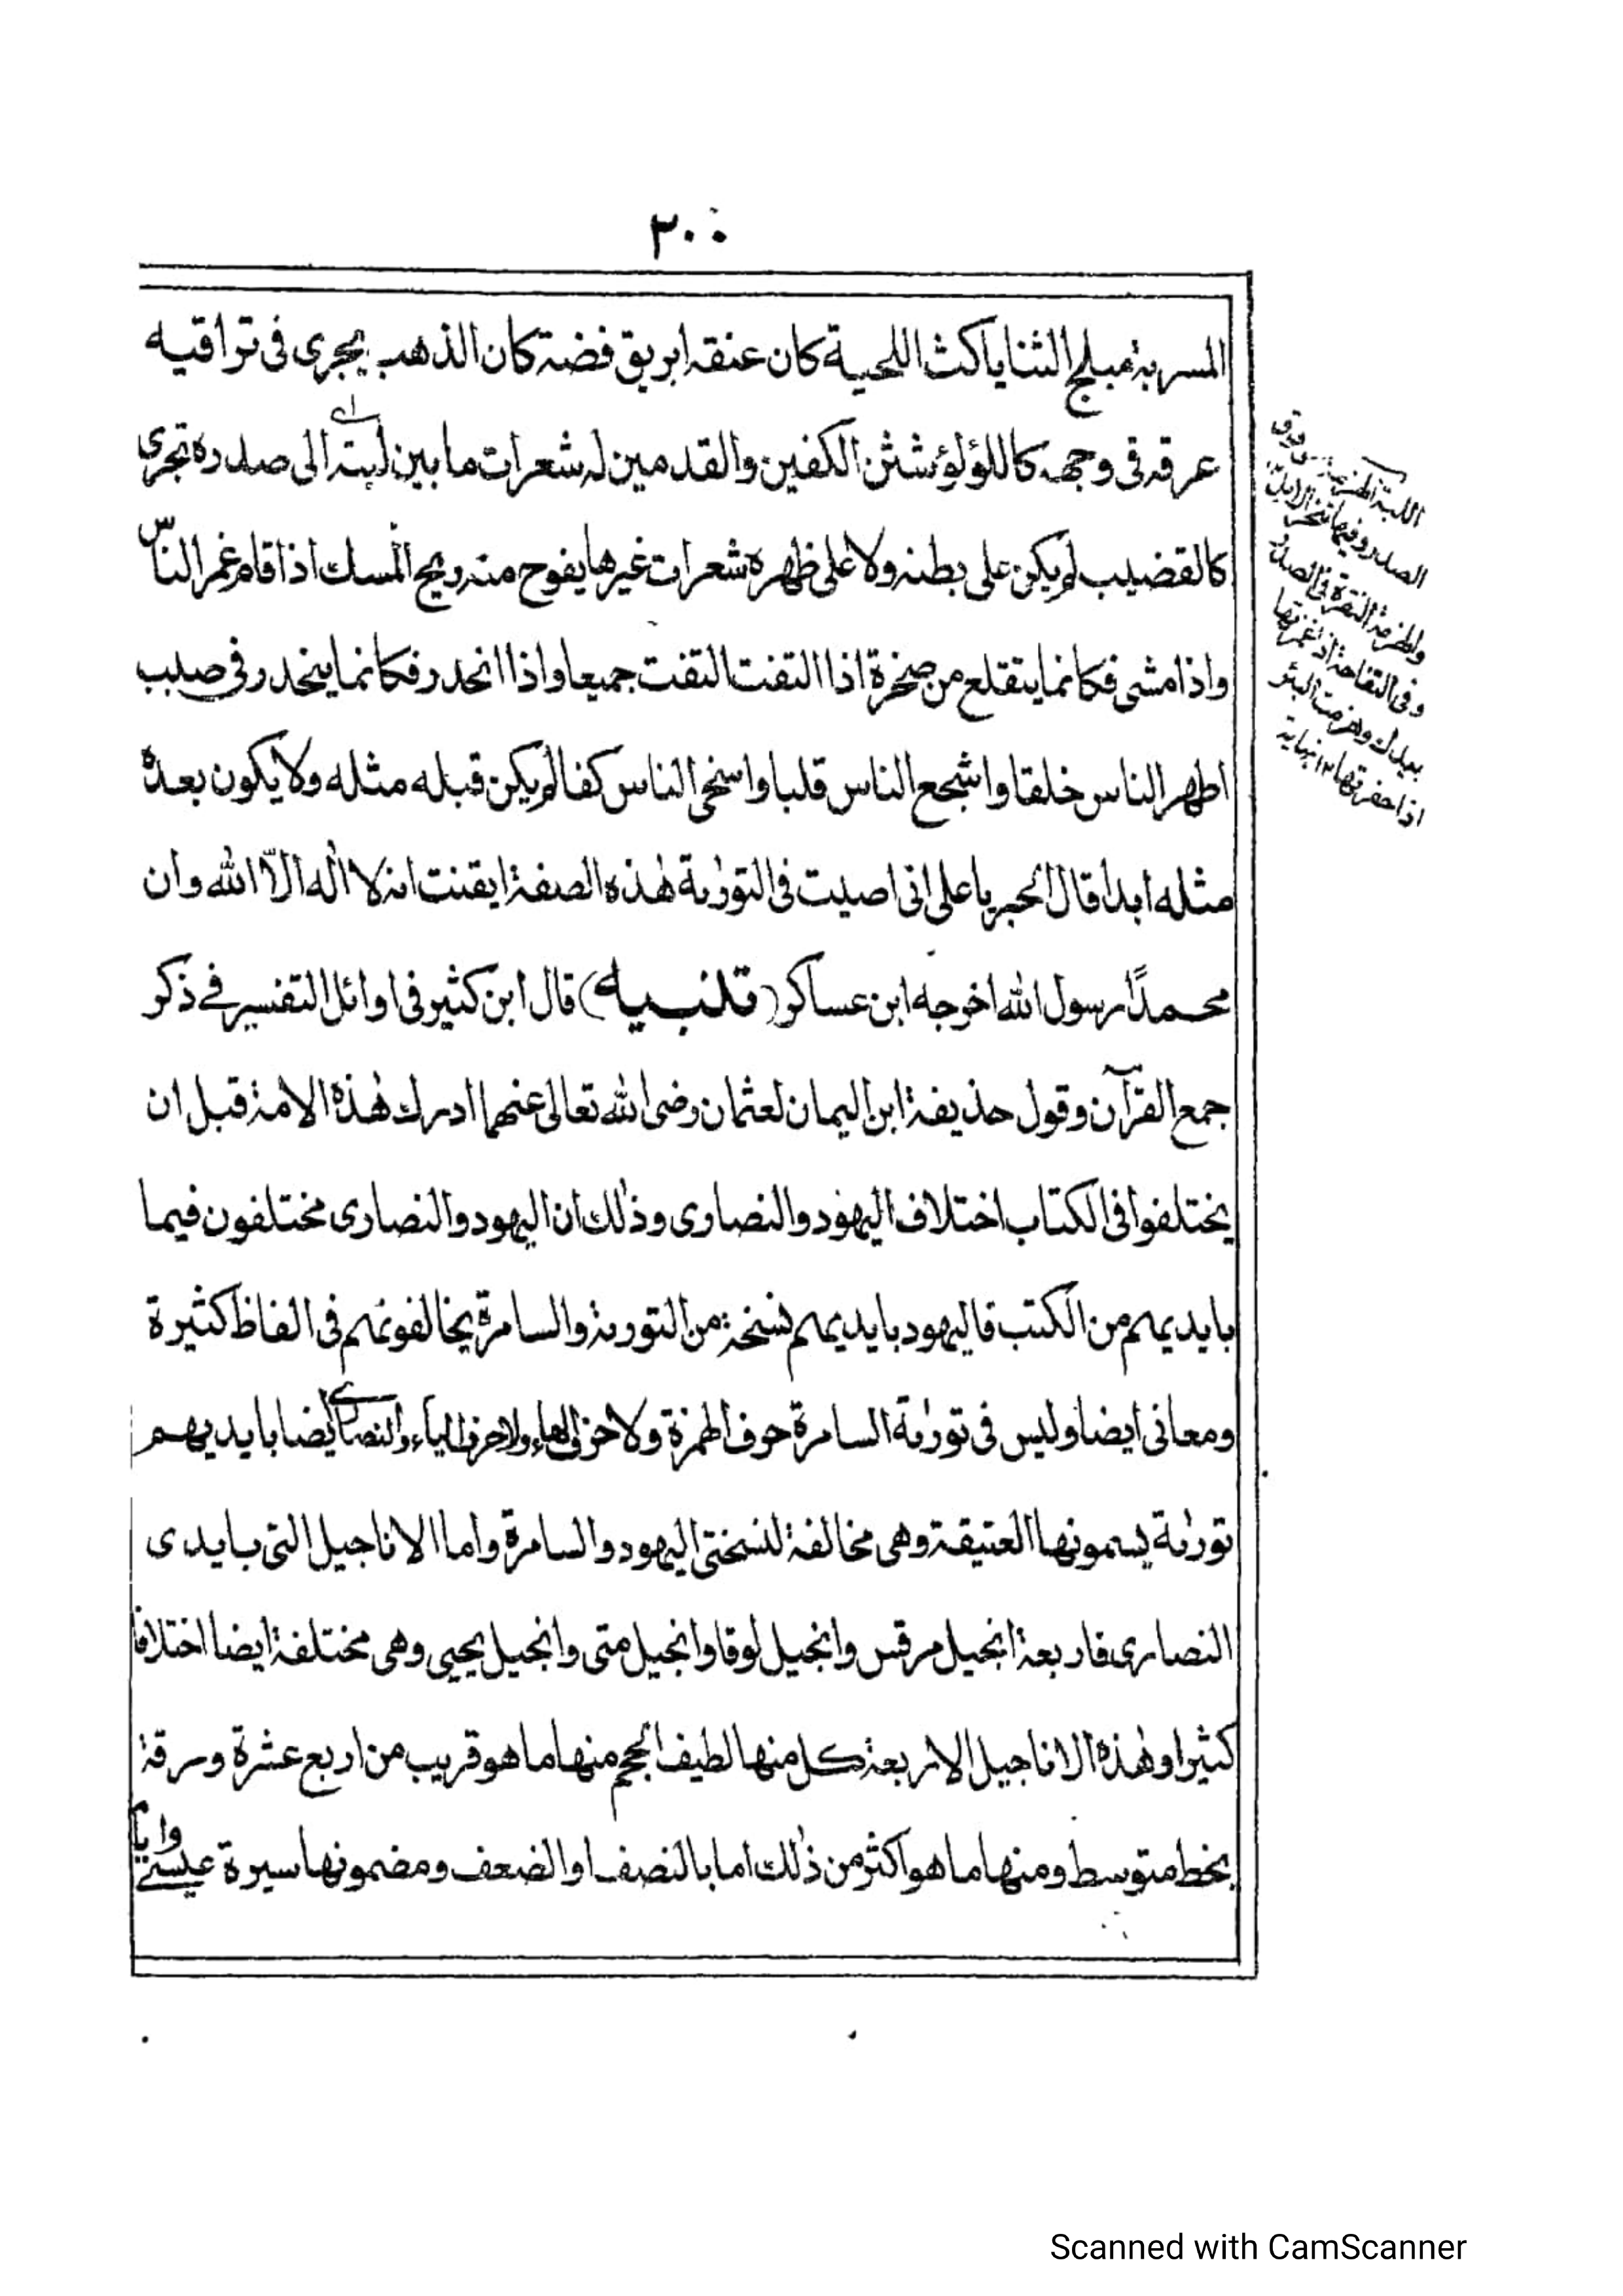 ٢٠٠
المسربة مبلج الثنايا كث اللحية كان عنقه ابريق فضة كان الذهب يجرى فى تراقيه
عرقه فى وجهه كاللؤلؤ شثن الكفين والقدمين له شعرات ما بين لبته الى صدره تجرى
كالقضيب لم يكن على بطنه ولا على ظهره شعرات غيرها يفوح منه ريح المسك اذا قام غمر الناس
واذا مشى فكانما يتقلع من صخرة اذا التفت التفت جميعا واذا انحدر فكانما ينحدر فى صبب
اطهر الناس خلقا واشجع الناس قلبا واسخى الناس كفا لم يكن قبله مثله ولا يكون بعده
مثله ابدا قال الحبر يا على انى اصبت فى التورٰىة هٰذه الصفة ايقنت انه لا الٰه الّا الله وان
محمدًا رسول الله اخرجه ابن عساكر (تنبيه) قال ابن كثير فى اوائل التفسير فے ذكر
جمع القرآن وقول حذيفة ابن اليمان لعثمان رضى الله تعالى عنهما ادرك هٰذه الامة قبل ان
يختلفوا فى الكتاب اختلاف اليهود والنصارى وذٰلك ان اليهود والنصارى مختلفون فيما
بايديهم من الكتب فاليهود بايديهم نسخة من التورىة والسامرة يخالفونهم فى الفاظ كثيرة
ومعانى ايضا وليس فى تورٰىة السامرة حرف الهمزة ولا حرف الهاء ولا حرف الياء والنصارے ايضا بايديهم
تورٰىة يسمونها العتيقة وهى مخالفة لنسختى اليهود والسامرة واما الاناجيل التى بايدى
النصارى فاربعة انجيل مرقس وانجيل لوقا وانجيل متى وانجيل يحيى وهى مختلفة ايضا اختلافا
كثيرا وهٰذه الاناجيل الاربعة كل منها لطيف الحجم منها ما هو قريب من اربع عشرة ورقة
بخط متوسط ومنها ما هو اكثر من ذٰلك اما بالنصف او الضعف ومضمونها سيرة عيسےٰ وايا
اللبة الهزمة فوق
الصدر وفيها تنحر الابل
والهزمة النقرة فى الصدر
وفى التفاحة اذا غمزتها
بيدك وهزمت البئر
اذا حفرتها ١٢ نهاية
Scanned with CamScanner